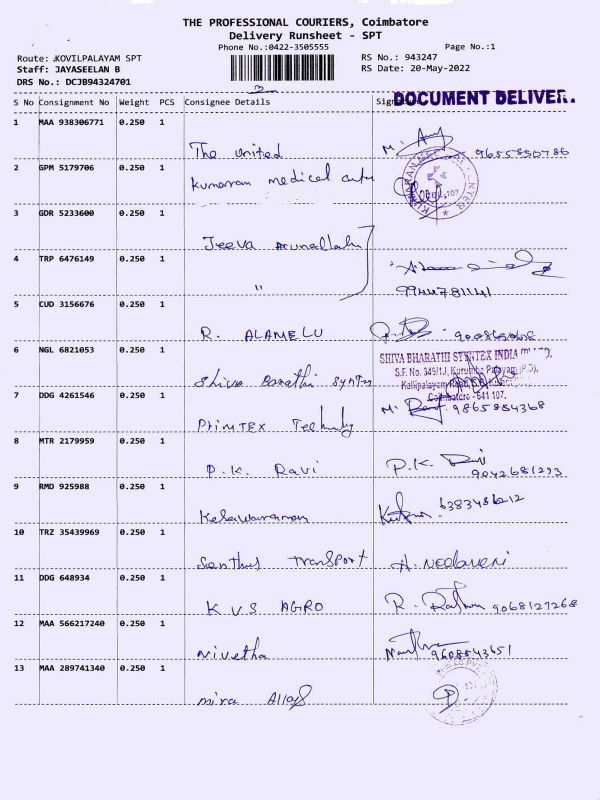 THE PROFESSIONAL COURIERS, Coimbatore
Delivery Runsheet - SPT
Phone No.:0422-3505555
Page No.:1
Route: KOVILPALAYAM SPT
RS No.: 943247
Staff: JAYASEELAN B
RS Date: 20-May-2022
DRS No.: DCJB94324701
DOCUMENT DELIVER.
S No Consignment No Weight PCS Consignee Details
1 MAA 938306771 0.250 1 The united
2 GPM 5179706 0.250 1 Kumaran medical
3 GDR 5233600 0.250 1 Jeeva
4 TRP 6476149 0.250 1 "
9944781141
5 CUD 3156676 0.250 1 R. ALAMELU
SHIVA BHARATHI SYNTEX INDIA
S.F. No. 349/1J, Kurumba Palayam
Kallipalayam
Coimbatore - 641 107.
6 NGL 6821053 0.250 1 Shiva Barathi
7 DDG 4261546 0.250 1 Printex 9865884368
8 MTR 2179959 0.250 1 P.K. Ravi P.K.
9042681293
9 RMD 925988 0.250 1 Kesavaraman
10 TRZ 35439969 0.250 1 Transport
11 DDG 648934 0.250 1 KVS AGRO R. 9068127268
12 MAA 566217240 0.250 1 Nivetha 9608843651
13 MAA 289741340 0.250 1 mira Alloys